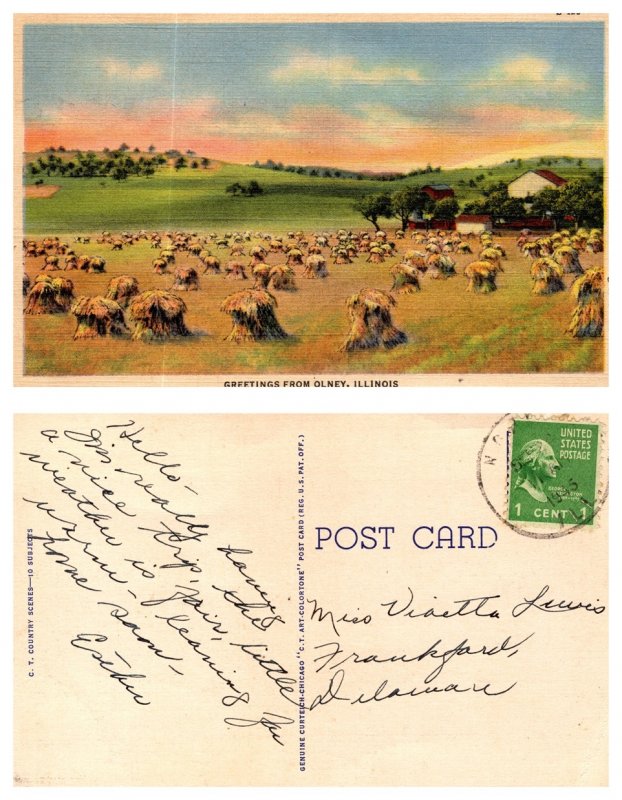 GREETINGS FROM OLNEY, ILLINOIS
Hello-
I'm really having
a nice trip, the
weather is fair, little
warm - Leaving for
home soon -
Esther
C. T. COUNTRY SCENES—10 SUBJECTS
GENUINE CURTEICH-CHICAGO "C.T. ART-COLORTONE" POST CARD (REG. U.S. PAT. OFF.)
POST CARD
UNITED
STATES
POSTAGE
1 CENT 1
Miss Violetta Lewis
Frankford,
Delaware